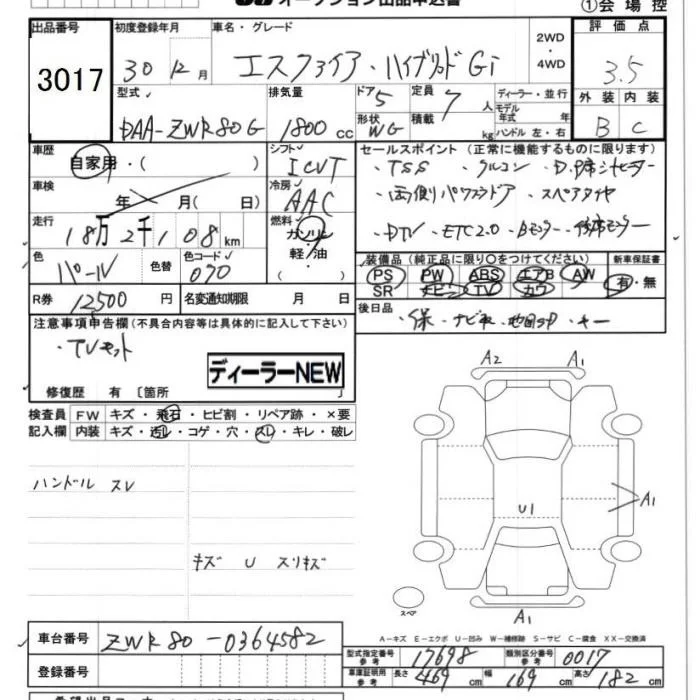 オークション出品申込書
①会場控
出品番号 初度登録年月 車名・グレード 2WD・4WD 評価点
3017 30 12月 エスクァイア・ハイブリッドGi 3.5
型式 排気量 ドア 5 定員 7人 ディーラー・並行 外装 内装
DAA-ZWR80G 1800cc 形状 WG 積載 kg モデル年式 年式 ハンドル 左・右 B C
車歴 自家用・( ) シフト ICVT セールスポイント (正常に機能するものに限ります)
・TSS ・クルコン
車検 年 月(日) 冷房 AAC ・両側パワスラドア ・スペアタイヤ
走行 18万2千108km 燃料 ガソリン・軽油・( ) ・DTV ・ETC2.0 ・Bモニター
色 パール 色替 色コード 070 装備品 (純正品に限り○をつけてください) 新車保証書
PS PW ABS エアB AW 有・無
SR ナビ TV カワ
R券 12500円 名変通知期限 月 日 後日品 ・保・ナビ
注意事項申告欄(不具合内容等は具体的に記入して下さい)
・TVキット
ディーラーNEW
修復歴 有〔箇所 〕
検査員記入欄 FW キズ・飛石・ヒビ割・リペア跡・×要
内装 キズ・汚レ・コゲ・穴・スレ・キレ・破レ
ハンドル スレ
キズ U スリキズ
A2 A1
U1 A1
スペア A1
A-キズ E-エクボ U-凹み W-補修跡 S-サビ C-腐食 XX-交換済
車台番号 ZWR80-0364582 型式指定番号 参考 17698 類別区分番号 参考 0017
登録番号 車庫証明用 参考 長さ 469cm 幅 169cm 高さ 182cm